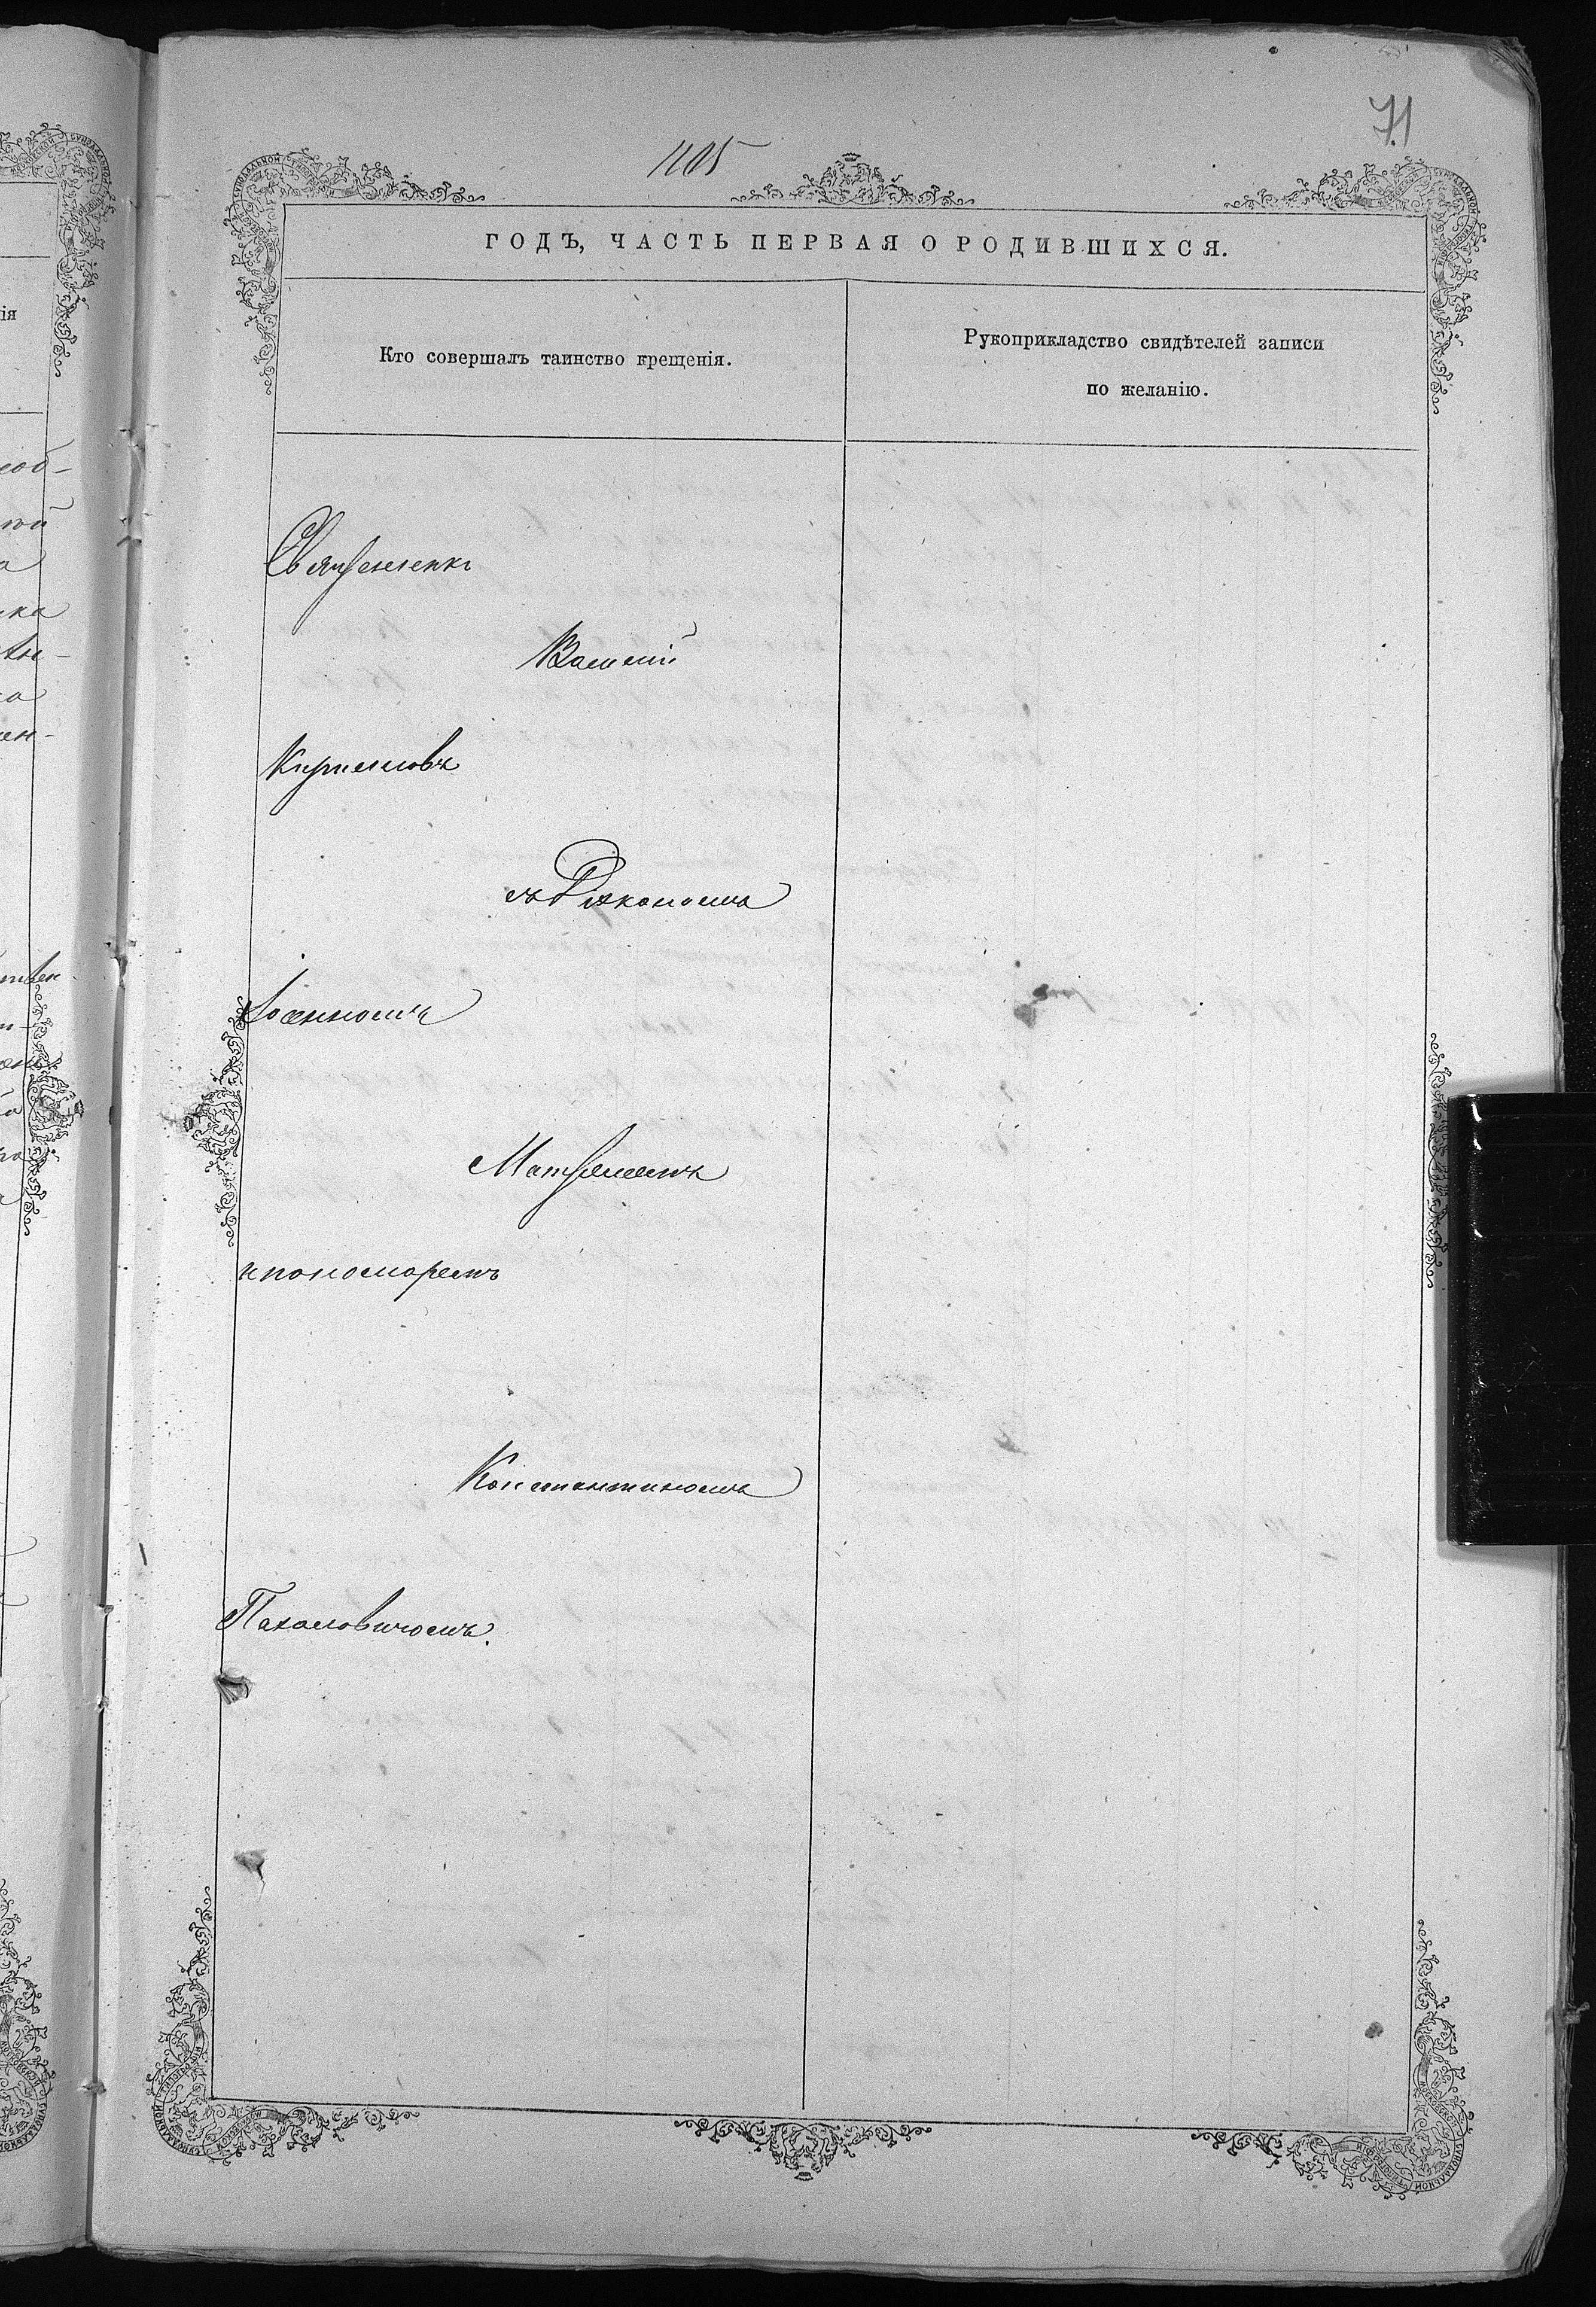 71
1105
ГОДЪ, ЧАСТЬ ПЕРВАЯ О РОДИВШИХСЯ.
Кто совершалъ таинство крещенія.
Рукоприкладство свидѣтелей записи
по желанію.
Священникъ
Василій
Кирилловъ
съ Діакономъ
Іоанномъ
и пономаремъ
Константиномъ